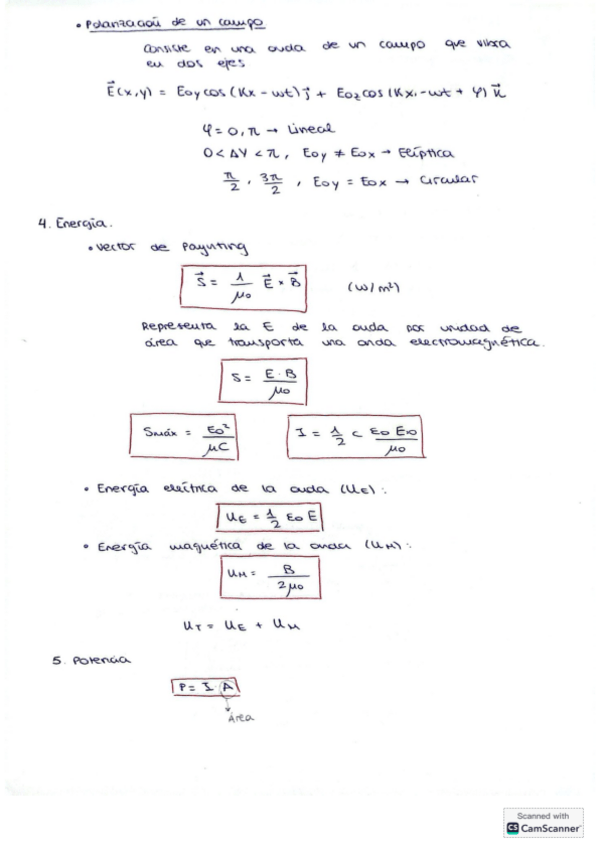 • Polarización de un campo
Consiste en una onda de un campo que vibra
en dos ejes
E⃗(x,y) = Eoy cos (Kx - wt) j⃗ + Eoz cos (Kx - wt + φ) k⃗
φ = 0, π → Lineal
0 < Δφ < π, Eoy ≠ Eox → Elíptica
π/2, 3π/2, Eoy = Eox → Circular
4. Energía.
• Vector de Paynting
S⃗ = 1/μo E⃗ × B⃗ (W/m²)
Representa la E de la onda por unidad de
área que transporta una onda electromagnética.
S = E · B / μo
Smáx = Eo² / μC
I = 1/2 c εo Eo / μo
• Energía eléctrica de la onda (UE):
UE = 1/2 εo E
• Energía magnética de la onda (UM):
UM = B / 2μo
UT = UE + UM
5. Potencia
P = I · A
Área
Scanned with
CS CamScanner